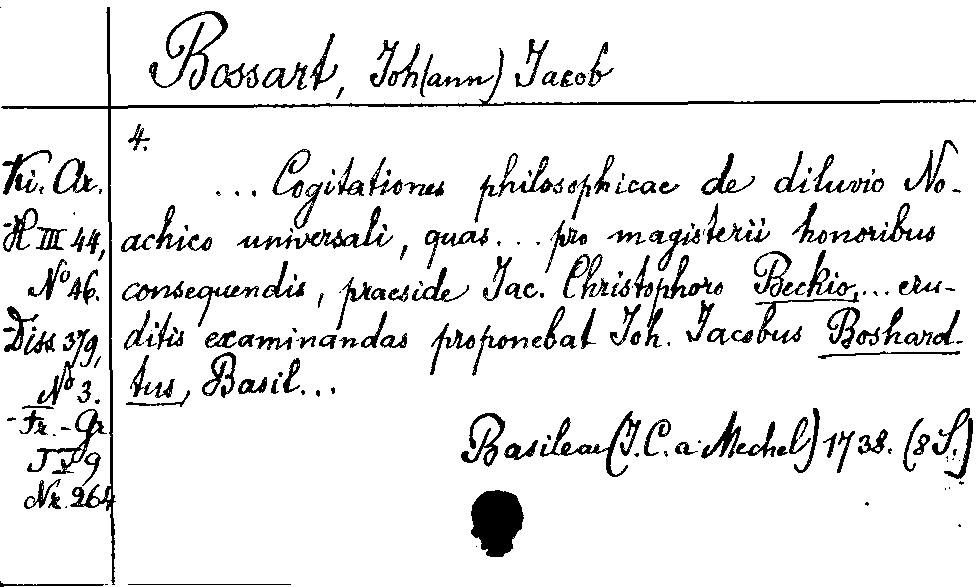 Bossart, Joh(ann) Jacob
4.
... Cogitationes philosophicae de diluvio No-
achico universali, quas... pro magisterii honoribus
consequendis, praeside Jac. Christophoro Beckio,... eru-
ditis examinandas proponebat Joh. Jacobus Boshard-
tus, Basil...
Basileae (J.C. a Mechel) 1738. (8 S.)
Ki. Ar.
H III 44,
No 46.
Diss. 379,
No 3.
Fr.-Gr.
Nr. 264